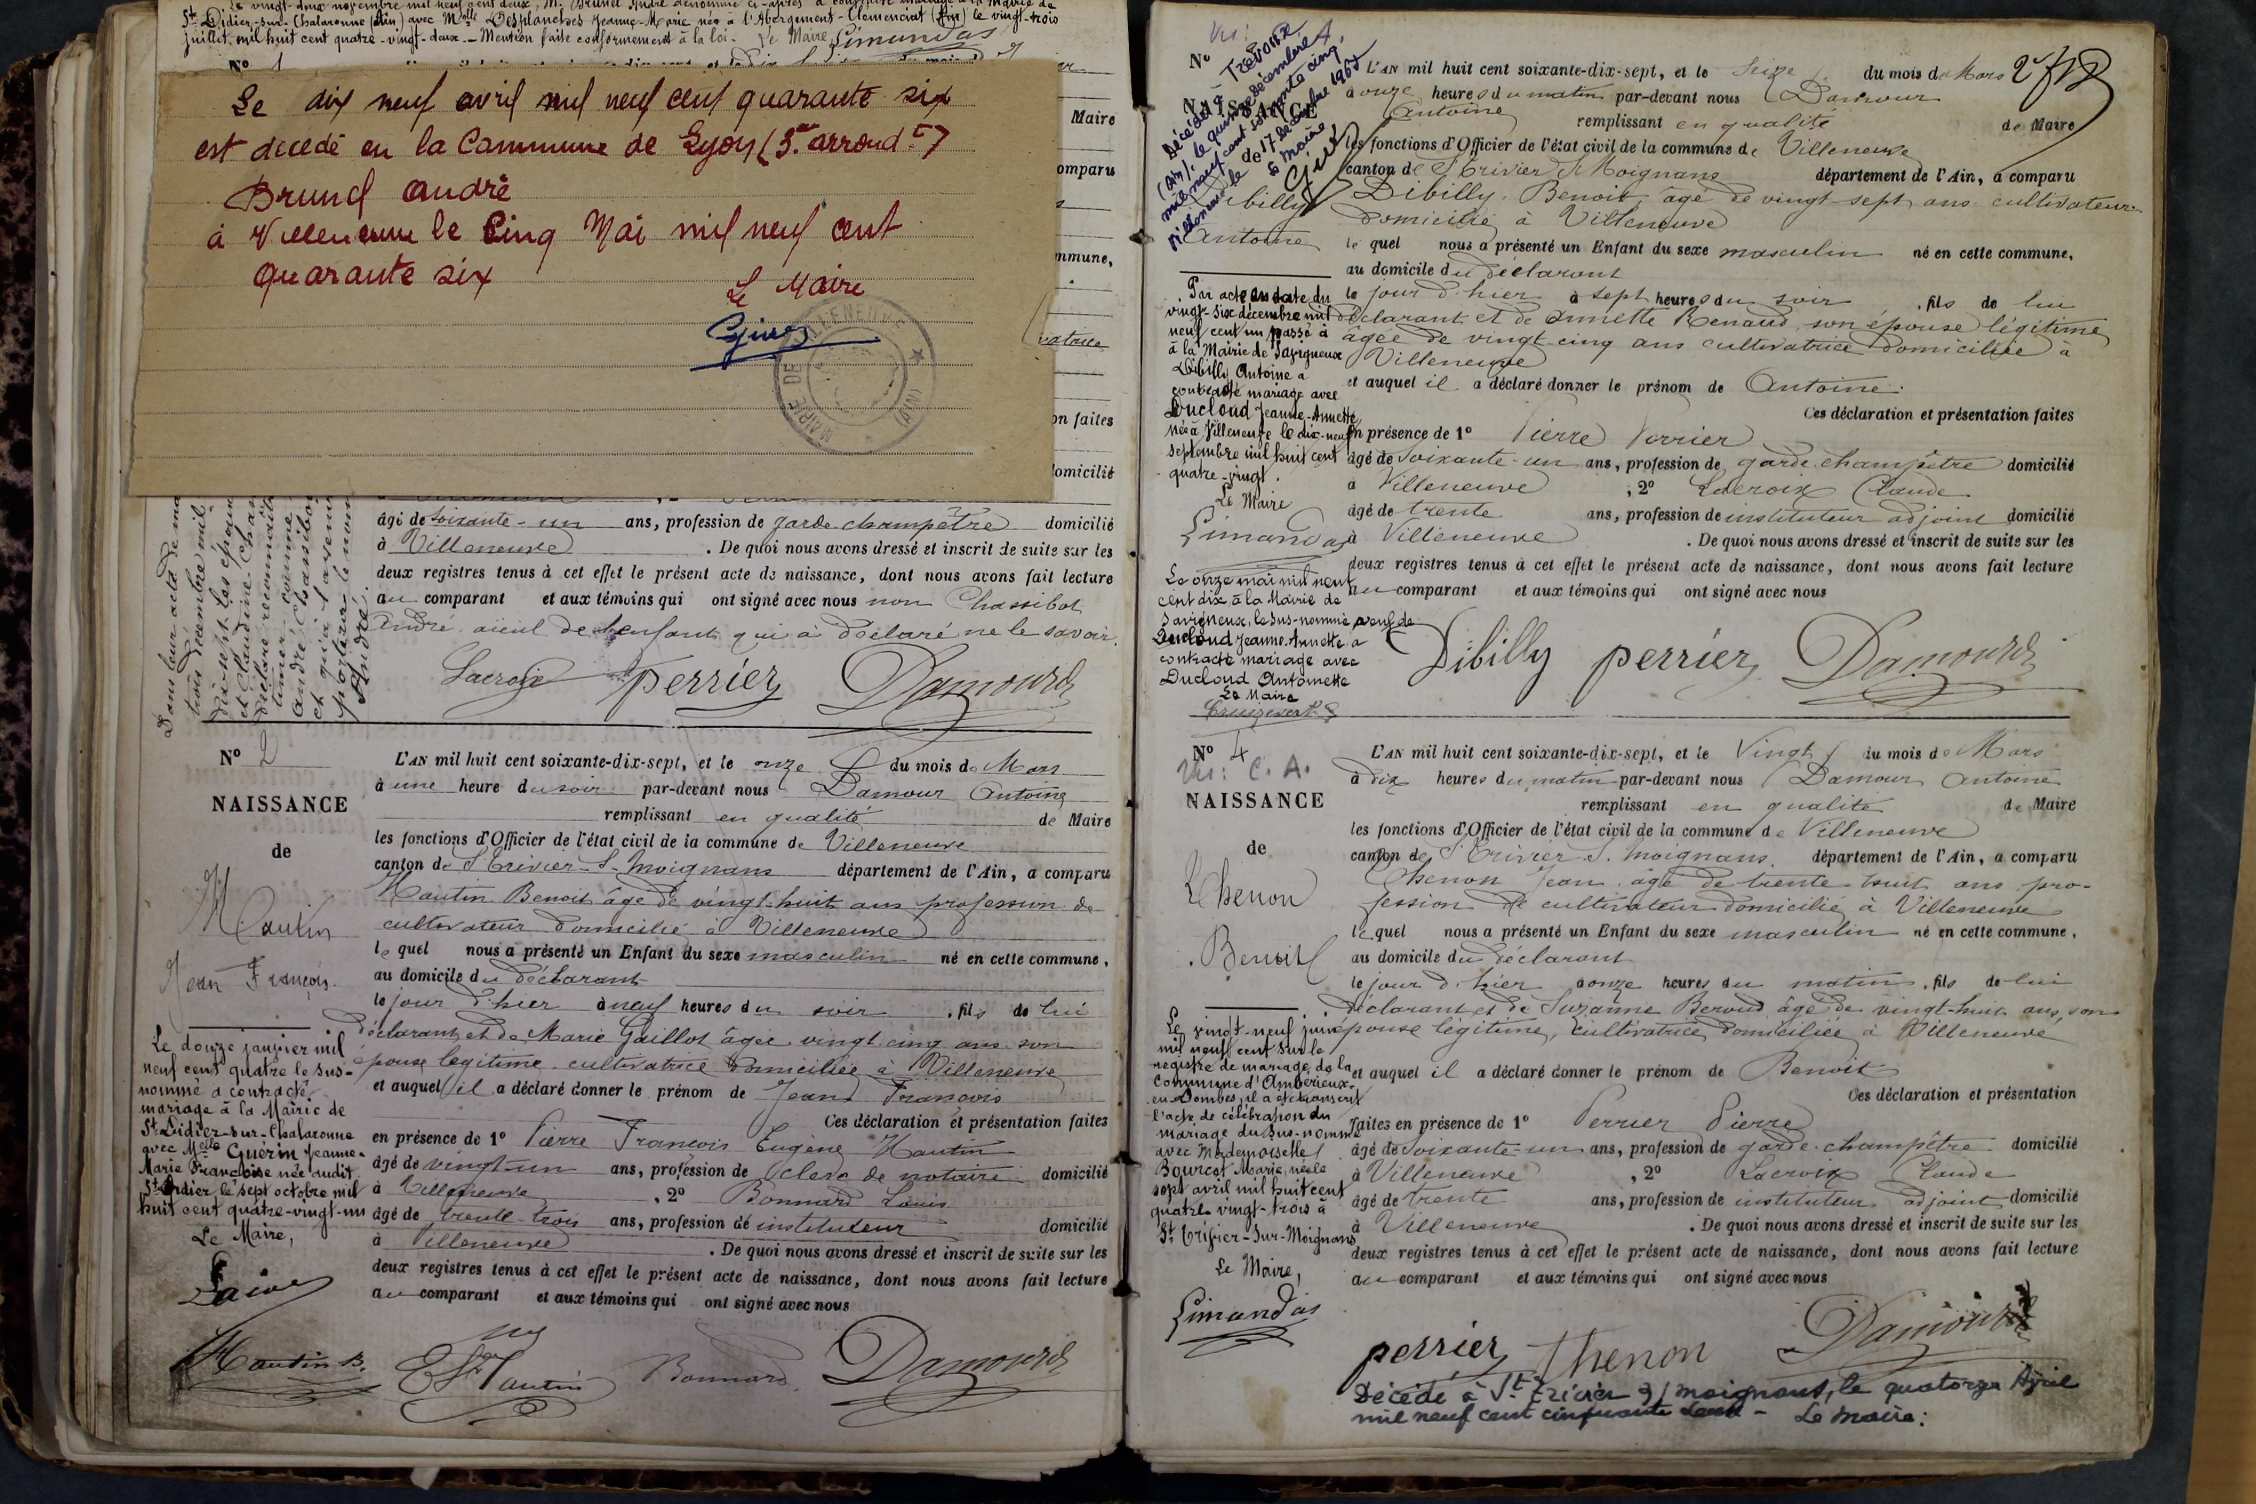 Le vingt-deux novembre mil neuf cent deux, M. Brunet André dénommé ci-après a contracté mariage à la Mairie de
St Didier-sur-Chalaronne (Ain) avec Melle Desplanches Jeanne-Marie née à l'Abergement-Clémenciat (Ain) le vingt-trois
juillet mil huit cent quatre-vingt-deux. - Mention faite conformément à la loi. Le Maire, Limandas
No 1
Le dix neuf avril mil neuf cent quarante six
est décédé en la Commune de Lyon (3e arrondt)
Brunet André
à Villeneuve le Cinq Mai mil neuf cent
quarante six
Le Maire
MAIRIE DE VILLENEUVE (AIN)
Maire
omparu
mmune,
vatrice
on faites
domicilié
âgé de soixante-un ans, profession de garde champêtre domicilié
à Villeneuve . De quoi nous avons dressé et inscrit de suite sur les
deux registres tenus à cet effet le présent acte de naissance, dont nous avons fait lecture
au comparant et aux témoins qui ont signé avec nous non Chassibot
André aïeul de l'enfant qui a déclaré ne le savoir.
Lacroix perrier Damour
No 2
NAISSANCE
de
Mautin
Jean François
L'AN mil huit cent soixante-dix-sept, et le onze du mois de Mars
à une heure du soir par-devant nous Damour Antoine
remplissant en qualité de Maire
les fonctions d'Officier de l'état civil de la commune de Villeneuve
canton de St Trivier S. Moignans département de l'Ain, a comparu
Mautin Benoit âgé de vingt-huit ans profession de
cultivateur domicilié à Villeneuve
le quel nous a présenté un Enfant du sexe masculin né en cette commune,
au domicile du déclarant
le jour d'hier à neuf heures du soir , fils de lui
déclarant et de Marie Gaillot âgée vingt cinq ans son
épouse legitime cultivatrice domiciliée à Villeneuve
et auquel il a déclaré donner le prénom de Jean François
Ces déclaration et présentation faites
en présence de 1o Pierre François Eugène Mautin
âgé de vingt-un ans, profession de clerc de notaire domicilié
à Villeneuve , 2o Bonnard Louis
âgé de trente-trois ans, profession de instituteur domicilié
à Villeneuve . De quoi nous avons dressé et inscrit de suite sur les
deux registres tenus à cet effet le présent acte de naissance, dont nous avons fait lecture
au comparant et aux témoins qui ont signé avec nous
Le douze janvier mil
neuf cent quatre le sus-
nommé a contracté
mariage à la Mairie de
St Didier-sur-Chalaronne
avec Melle Guérin Jeanne-
Marie Françoise née audit
St Didier, le sept octobre mil
huit cent quatre-vingt-un
Le Maire,
Mautin B. Bonnard Damour
No
Dibilly
Antoine
L'AN mil huit cent soixante-dix-sept, et le Seize du mois de Mars
à onze heures du matin par-devant nous Damour
Antoine remplissant en qualité de Maire
les fonctions d'Officier de l'état civil de la commune de Villeneuve
canton de St Trivier S. Moignans département de l'Ain, a comparu
Dibilly Benoit, âgé de vingt-sept ans cultivateur
domicilié à Villeneuve
le quel nous a présenté un Enfant du sexe masculin né en cette commune,
au domicile du déclarant
le jour d'hier à sept heures du soir , fils de lui
déclarant et de Annette Renaud, son épouse légitime
âgée de vingt cinq ans cultivatrice domiciliée à
Villeneuve
et auquel il a déclaré donner le prénom de Antoine.
Ces déclaration et présentation faites
en présence de 1o Pierre Perrier
âgé de soixante-un ans, profession de garde champêtre domicilié
à Villeneuve , 2o Lacroix Claude
âgé de trente ans, profession de instituteur adjoint domicilié
à Villeneuve . De quoi nous avons dressé et inscrit de suite sur les
deux registres tenus à cet effet le présent acte de naissance, dont nous avons fait lecture
au comparant et aux témoins qui ont signé avec nous
Par acte en date du
vingt-six décembre mil
neuf cent un passé à
à la Mairie de Savigneux
Dibilly Antoine a
contracté mariage avec
Ducloud Jeanne-Annette
née à Villeneuve le dix-neuf
septembre mil huit cent
quatre-vingt.
Le Maire
Limandas
Le onze mai mil neuf
cent dix, à la Mairie de
Savigneux, le sus-nommé veuf de
Ducloud Jeanne-Annette a
contracté mariage avec
Ducloud Antoinette
Le Maire
Dibilly perrier Damour
No 4
Vu: C. A.
NAISSANCE
de
Thenon
Benoit
L'AN mil huit cent soixante-dix-sept, et le Vingt du mois de Mars
à dix heures du matin par-devant nous Damour Antoine
remplissant en qualité de Maire
les fonctions d'Officier de l'état civil de la commune de Villeneuve
canton de St Trivier S. Moignans département de l'Ain, a comparu
Thenon Jean âgé de trente huit ans pro-
fession de cultivateur domicilié à Villeneuve
le quel nous a présenté un Enfant du sexe masculin né en cette commune,
au domicile du déclarant
le jour d'hier à onze heures du matin, fils de lui
déclarant et de Suzanne Beroud âgé de vingt-huit ans, son
épouse légitime, cultivatrice domiciliée à Villeneuve
et auquel il a déclaré donner le prénom de Benoit
Ces déclaration et présentation
faites en présence de 1o Perrier Pierre
âgé de soixante-un ans, profession de garde-champêtre domicilié
à Villeneuve , 2o Lacroix Claude
âgé de trente ans, profession de instituteur adjoint domicilié
à Villeneuve . De quoi nous avons dressé et inscrit de suite sur les
deux registres tenus à cet effet le présent acte de naissance, dont nous avons fait lecture
au comparant et aux témoins qui ont signé avec nous
Le vingt-neuf juin
mil neuf cent sur le
registre de mariage de la
commune d'Ambérieux-
en Dombes, il a été transcrit
l'acte de célébration du
mariage du sus-nommé
avec Mademoiselle
Bourcet Marie, née le
sept avril mil huit cent
quatre vingt-trois à
St Trivier-sur-Moignans
Le Maire,
Limandas
perrier Thenon Damour
Décédé à St Trivier s/ moignans, le quatorze Avril
mil neuf cent cinquante - Le Maire: